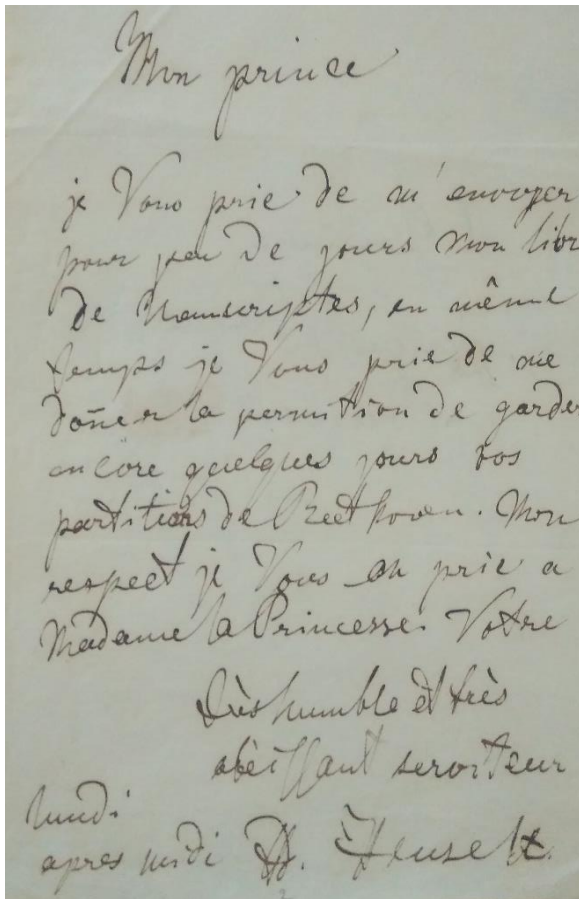 Mon prince
je Vous prie de m'envoyer
pour peu de jours mon libr
de Manuscriptes, en même
temps je Vous prie de me
doñer la permition de garder
encore quelques jours vos
partitions de Beethoven. Mon
respect je Vous en prie a
Madame la Princesse. Votre
très humble et très
obéissant serviteur
lundi
apres midi A. Henselt.